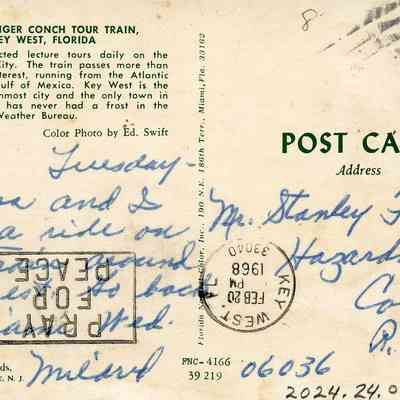 NGER CONCH TOUR TRAIN,
EY WEST, FLORIDA
cted lecture tours daily on the
City. The train passes more than
terest, running from the Atlantic
ulf of Mexico. Key West is the
nmost city and the only town in
has never had a frost in the
Weather Bureau.
Color Photo by Ed. Swift
Tuesday-
and I
a ride on
around
to back
Wed.
Mildred
ds,
, N. J.
PRAY
FOR
PEACE
Florida Color, Inc., 190 N.E. 186th Terr., Miami, Fla. 33162
FNC-4166
39219
8
POST CA
Address
Mr. Stanley
Hazard
Co
R.
06036
KEY WEST
FEB 20
PM
1968
33040
2024.24.0